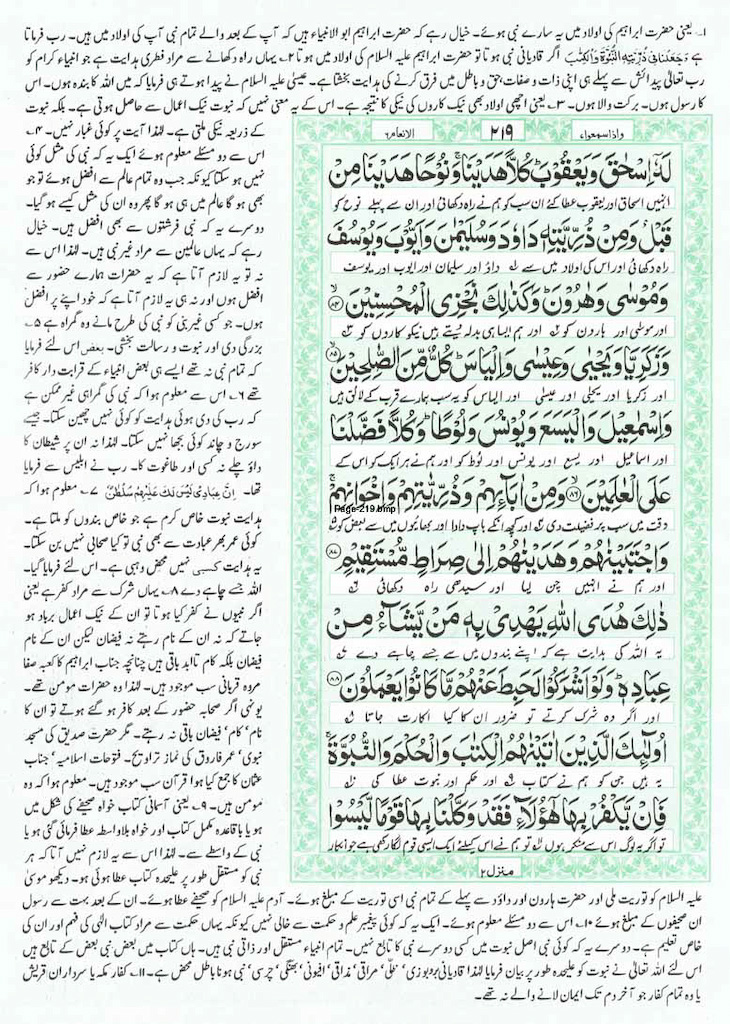 ۱؎ یعنی حضرت ابراہیم کی اولاد میں یہ سارے نبی ہوئے۔ خیال رہے کہ حضرت ابراہیم ابو الانبیاء ہیں کہ آپ کے بعد والے تمام نبی آپ کی اولاد میں ہیں۔ رب فرماتا
ہے وَجَعَلْنَا فِیْ ذُرِّیَّتِہِ النُّبُوَّۃَ وَالْکِتٰبَ اگر قادیانی نبی ہوتا تو حضرت ابراہیم علیہ السلام کی اولاد میں ہوتا ۲؎ یہاں راہ دکھانے سے مراد فطری ہدایت ہے جو انبیاء کرام کو
رب تعالیٰ پیدائش سے پہلے ہی اپنی ذات و صفات حق و باطل میں فرق کرنے کی ہدایت بخشتا ہے۔ عیسیٰ علیہ السلام نے پیدا ہوتے ہی فرمایا کہ میں اللہ کا بندہ ہوں۔ اس
کا رسول ہوں۔ برکت والا ہوں۔ ۳؎ یعنی اچھی اولاد بھی نیک کاروں کی نیکی کا نتیجہ ہے۔ اس کے یہ معنی نہیں کہ نبوت نیک اعمال سے حاصل ہوتی ہے۔ بلکہ نبوت
کے ذریعہ نیکی ملتی ہے۔ لہٰذا آیت پر کوئی غبار نہیں۔ ۴؎
اس سے دو مسئلے معلوم ہوئے ایک یہ کہ نبی کی مثل کوئی
نہیں ہو سکتا کیونکہ جب وہ تمام عالم سے افضل ہوئے تو جو
بھی ہو گا عالم میں ہی ہو گا پھر وہ ان کی مثل کیسے ہو گا۔
دوسرے یہ کہ نبی فرشتوں سے بھی افضل ہیں۔ خیال
رہے کہ یہاں عالمین سے مراد غیر نبی ہیں۔ لہٰذا اس سے
نہ تو یہ لازم آتا ہے کہ یہ حضرات ہمارے حضور سے
افضل ہوں اور نہ ہی یہ لازم آتا ہے کہ خود اپنے پر افضل
ہوں۔ جو کسی غیر نبی کو نبی کی طرح مانے وہ گمراہ ہے ۵؎
بزرگی دی اور نبوت و رسالت بخشی۔ بعض اس لئے فرمایا
کہ تمام نبی نہ تھے ایسے ہی بعض انبیاء کے قرابت دار کافر
تھے ۶؎ اس سے معلوم ہوا کہ نبی کی گمراہی غیر ممکن ہے
کہ رب کی دی ہوئی ہدایت کو کوئی نہیں چھین سکتا۔ جیسے
سورج و چاند کوئی بجھا نہیں سکتا۔ لہٰذا نہ ان پر شیطان کا
داؤ چلے نہ کسی اور طاغوت کا۔ رب نے ابلیس سے فرمایا
تھا۔ اِنَّ عِبَادِیْ لَیْسَ لَکَ عَلَیْہِمْ سُلْطٰنٌ ۷؎ معلوم ہوا کہ
ہدایت نبوت خاص کرم ہے جو خاص بندوں کو ملتا ہے۔
کوئی عمر بھر عبادت سے بھی نبی تو کیا صحابی نہیں بن سکتا۔
یہ ہدایت کسبی نہیں محض وہبی ہے۔ اس لئے فرمایا گیا۔
اللہ جسے چاہے دے ۸؎ یہاں شرک سے مراد کفر ہے یعنی
اگر نبیوں نے کفر کیا ہوتا تو ان کے نیک اعمال برباد ہو
جاتے کہ نہ ان کے نام رہتے نہ فیضان لیکن ان کے نام
فیضان بلکہ کام تا ابد باقی ہیں چنانچہ جناب ابراہیم کا کعبہ صفا
مروہ قربانی سب موجود ہیں۔ لہٰذا وہ حضرات مومن تھے۔
یونہی اگر صحابہ حضور کے بعد کافر ہو گئے ہوتے تو ان کا
نام، کام، فیضان باقی نہ رہتے۔ مگر حضرت صدیق کی مسجد
نبوی، عمر فاروق کی نماز تراویح۔ فتوحات اسلامیہ، جناب
عثمان کا جمع کیا ہوا قرآن سب موجود ہیں۔ معلوم ہوا کہ وہ
مومن ہیں۔ ۹؎ یعنی آسمانی کتاب خواہ صحیفے کی شکل میں
ہو یا باقاعدہ مکمل کتاب اور خواہ بلاواسطہ عطا فرمائی گئی ہو یا
نبی کے واسطے سے۔ لہٰذا اس سے یہ لازم نہیں آتا کہ ہر
نبی کو مستقل طور پر علیحدہ کتاب عطا ہوئی ہو۔ دیکھو موسیٰ
واذا سمعوا۷
۲۱۹
الانعام۶
لَهٗۤ اِسْحٰقَ وَیَعْقُوْبَ ؕ كُلًّا هَدَیْنَا ۚ وَنُوْحًا هَدَیْنَا مِنْ
انہیں اسحاق اور یعقوب عطا کئے ان سب کو ہم نے راہ دکھائی اور ان سے پہلے نوح کو
قَبْلُ وَمِنْ ذُرِّیَّتِهٖ دَاوٗدَ وَسُلَیْمٰنَ وَاَیُّوْبَ وَیُوْسُفَ
راہ دکھائی اور اس کی اولاد میں سے داؤد اور سلیمان اور ایوب اور یوسف
وَمُوْسٰى وَهٰرُوْنَ ؕ وَكَذٰلِكَ نَجْزِی الْمُحْسِنِیْنَ ۸۴
اور موسیٰ اور ہارون کو اور ہم ایسا ہی بدلہ دیتے ہیں نیکوکاروں کو
وَزَكَرِیَّا وَیَحْیٰى وَعِیْسٰى وَاِلْیَاسَ ؕ كُلٌّ مِّنَ الصّٰلِحِیْنَ ۸۵
اور زکریا اور یحییٰ اور عیسیٰ اور الیاس کو یہ سب ہمارے قرب کے لائق ہیں
وَاِسْمٰعِیْلَ وَالْیَسَعَ وَیُوْنُسَ وَلُوْطًا ؕ وَكُلًّا فَضَّلْنَا
اور اسماعیل اور یسع اور یونس اور لوط کو اور ہم نے ہر ایک کو اس کے
عَلَى الْعٰلَمِیْنَ ۸۶ وَمِنْ اٰبَآئِهِمْ وَذُرِّیّٰتِهِمْ وَاِخْوَانِهِمْ ۚ
Page-219.bmp
وقت میں سب پر فضیلت دی اور کچھ انکے باپ دادا اور اولاد اور بھائیوں میں سے بعض کو
وَاجْتَبَیْنٰهُمْ وَهَدَیْنٰهُمْ اِلٰى صِرَاطٍ مُّسْتَقِیْمٍ ۸۷
اور ہم نے انہیں چن لیا اور سیدھی راہ دکھائی
ذٰلِكَ هُدَى اللّٰهِ یَهْدِیْ بِهٖ مَنْ یَّشَآءُ مِنْ
یہ اللہ کی ہدایت ہے کہ اپنے بندوں میں سے جسے چاہے دے
عِبَادِهٖ ؕ وَلَوْ اَشْرَكُوْا لَحَبِطَ عَنْهُمْ مَّا كَانُوْا یَعْمَلُوْنَ ۸۸
اور اگر وہ شرک کرتے تو ضرور ان کا کیا اکارت جاتا
اُولٰٓئِكَ الَّذِیْنَ اٰتَیْنٰهُمُ الْكِتٰبَ وَالْحُكْمَ وَالنُّبُوَّةَ ۚ
یہ ہیں جن کو ہم نے کتاب اور حکم اور نبوت عطا کی
فَاِنْ یَّكْفُرْ بِهَا هٰۤؤُلَآءِ فَقَدْ وَكَّلْنَا بِهَا قَوْمًا لَّیْسُوْا
تو اگر یہ لوگ اس سے منکر ہوں تو ہم نے اس کیلئے ایک ایسی قوم لگا رکھی ہے جو انکار
منزل۲
علیہ السلام کو توریت ملی اور حضرت ہارون اور داؤد سے پہلے کے تمام نبی اسی توریت کے مبلغ ہوئے۔ آدم علیہ السلام کو صحیفے عطا ہوئے۔ ان کے بعد بہت سے رسول
ان صحیفوں کے مبلغ ہوئے ۱۰؎ اس سے دو مسئلے معلوم ہوئے۔ ایک یہ کہ کوئی پیغمبر علم و حکمت سے خالی نہیں کیونکہ یہاں حکمت سے مراد کتاب الٰہی کی فہم اور ان کی
خاص تعلیم ہے۔ دوسرے یہ کہ کوئی نبی اصل نبوت میں کسی دوسرے نبی کا تابع نہیں۔ تمام انبیاء مستقل اور ذاتی نبی ہیں۔ ہاں کتاب میں بعض نبی بعض کے تابع ہیں
اس لئے اللہ تعالیٰ نے نبوت کو علیحدہ طور پر بیان فرمایا لہٰذا قادیانی بروزی، ظلی، مراقی، مذاقی، افیونی، بھنگی، چرسی، نبی ہونا باطل محض ہے۔ ۱۱؎ کفار مکہ یا سرداران قریش
یا وہ تمام کفار جو آخر دم تک ایمان لانے والے نہ تھے۔